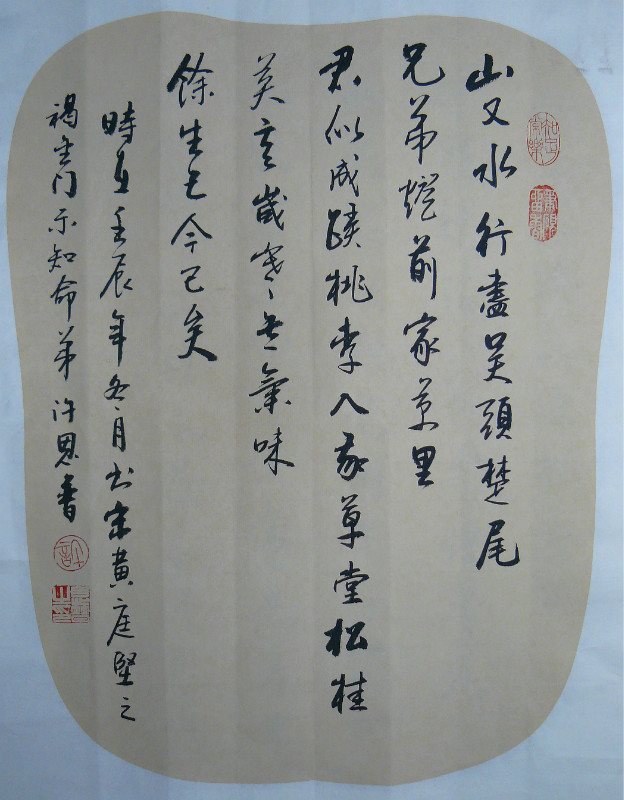 知足常樂
山又水行盡吴頭楚尾
兄弟燈前家万里
君似成蹊桃李入我草堂松桂
莫言歲寒无氣味
餘生今已矣
時在壬辰年冬月书宋黄庭堅之
謁金门示知命弟 许恩書
許